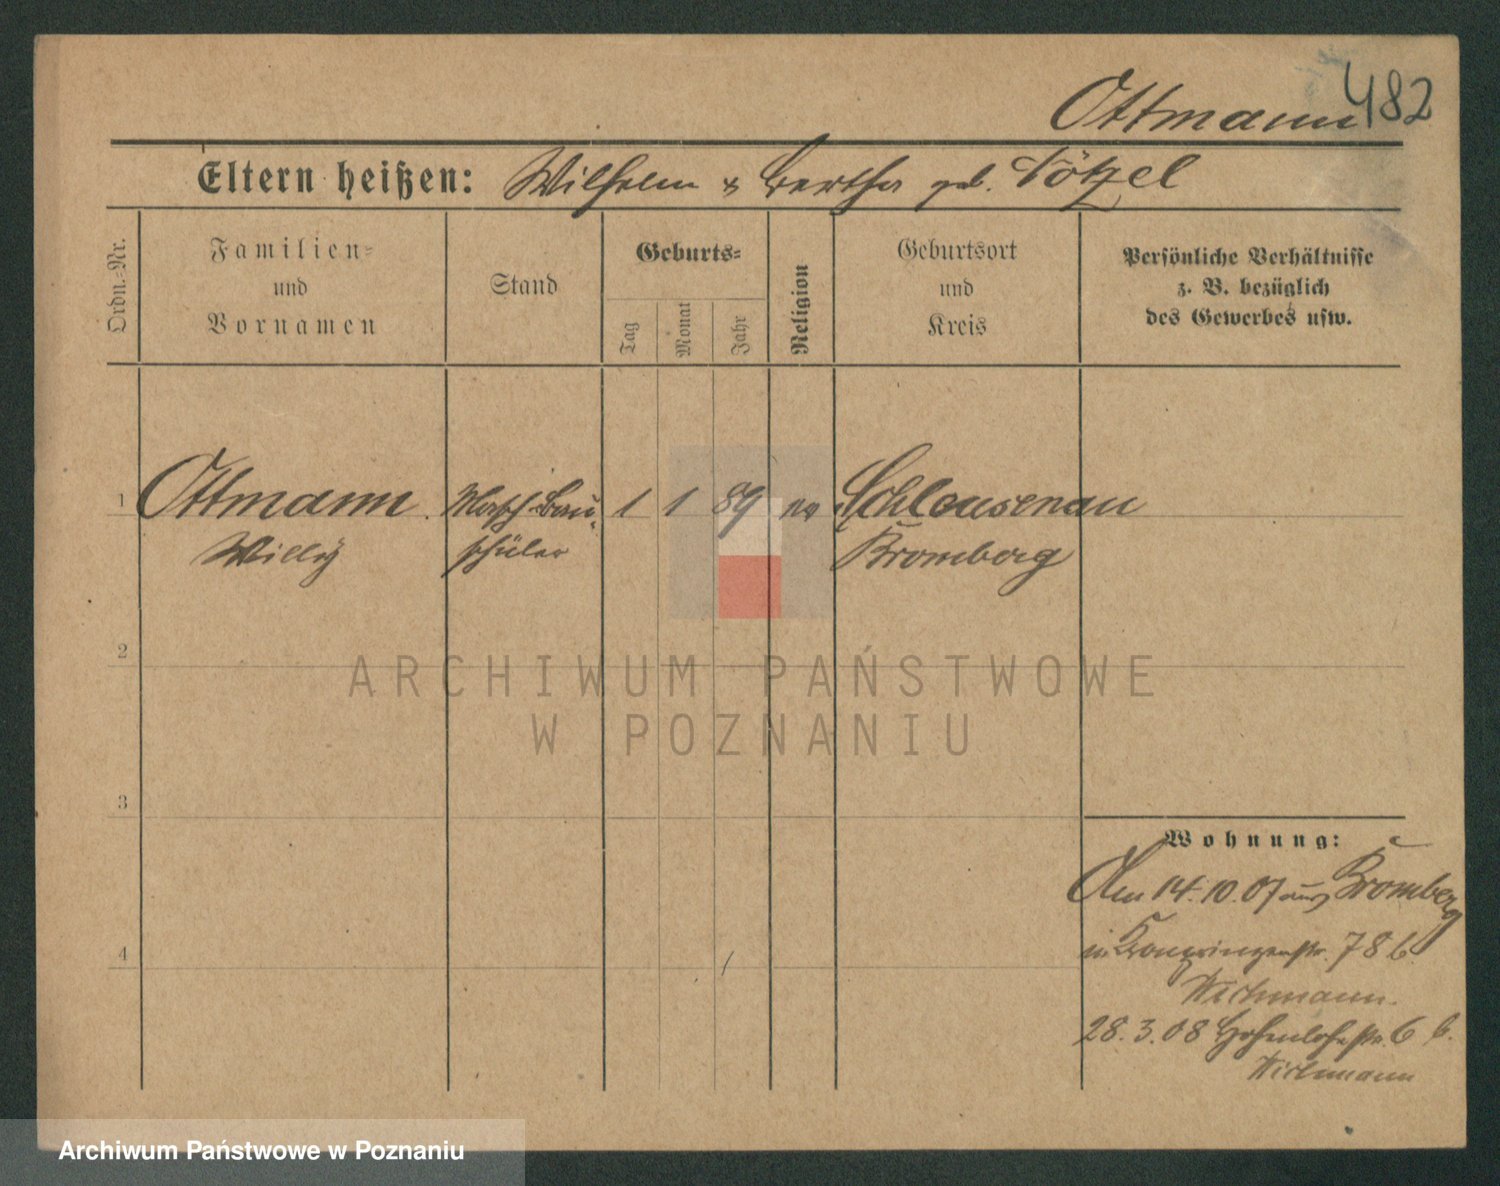 Ottmann 482
Eltern heißen: Wilhelm & Bertha geb. Tötzel
Ordn.-Nr.
Familien-
und
Vornamen
Stand
Geburts-
Tag
Monat
Jahr
Religion
Geburtsort
und
Kreis
Persönliche Verhältnisse
z. B. bezüglich
des Gewerbes usw.
1 Ottmann Masch.Bau- 1 1 89 ev Schleusenau
Willy schüler Bromberg
2
ARCHIWUM PAŃSTWOWE
W POZNANIU
3
Wohnung:
Am 14.10.07 aus Bromberg
in Kronprinzenstr. 78 b
4
Wichmann.
28.3.08 Hohenlohestr. 6 b.
Wichmann
Archiwum Państwowe w Poznaniu